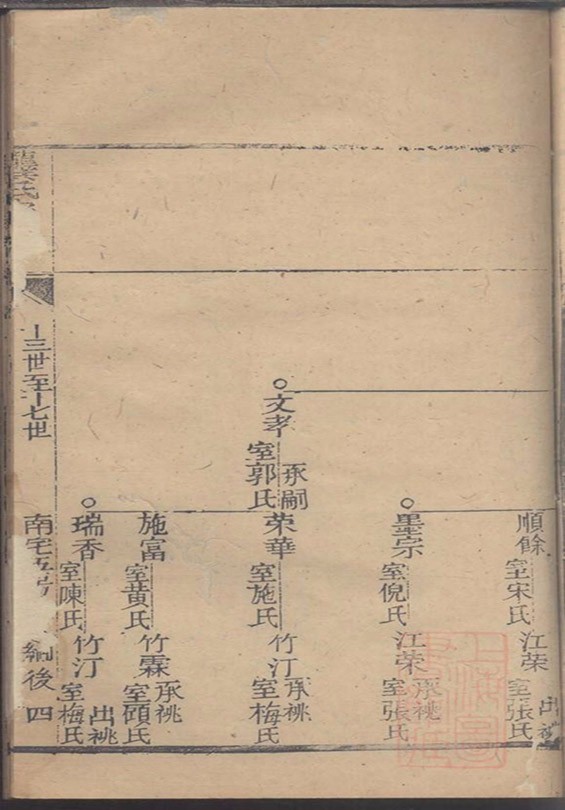 順餘
室宋氏
江荣
出祧
室張氏
墨宗
室倪氏
江荣
承祧
室張氏
文孝
承嗣
室郭氏
荣華
室施氏
竹汀
承祧
室梅氏
施富
室黄氏
竹霖
承祧
室頋氏
瑞香
室陳氏
竹汀
出祧
室梅氏
十三世至十七世
南宅五房
後四